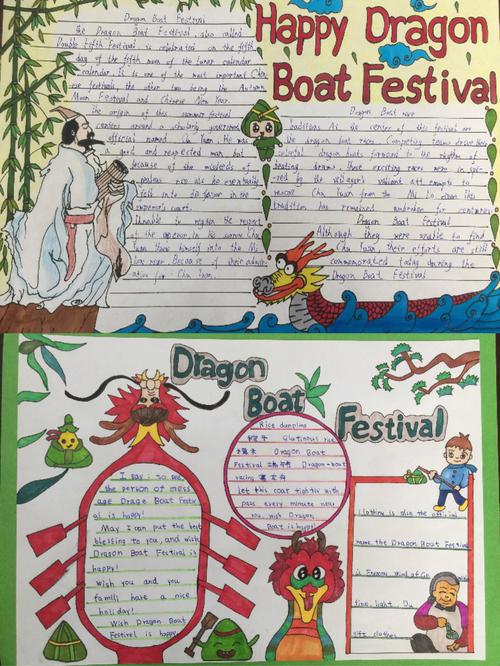 Happy Dragon
Boat Festival
Dragon Boat Festival
the Dragon Boat Festival, also called
Double Fifth Festival is celebrated on the fifth
day of the fifth moon of the lunar calendar
calendar. It is one of the most important
festivals, the other two being the Autumn
Moon Festival and Chinese New Year.
The origin of this summer festival
centers around a scholarly government
official named Chu Yuan. He was
a and respected man but
because of the misdeeds of
jealous
fell into in the
emperor's court.
to regain the respect
of the emperor in
Yuan threw himself into the Mi
River Because of their
for Chu Yuan.
Dragon Boat race
At the center of this festival are
the dragon boat races. Competing teams drive their
colorful dragon boats forward to the rhythm of
beating drums these exciting races were
by the villager's valiant to
rescue Chu Yuan from the Mi Lo river this
tradition has remained for centuries
Dragon Boat Festival
Although they were unable to find
Chu Yuan their efforts are still
commemorated today during the
Dragon Boat Festival
Dragon
Boat
Festival
I say: to
the person of mess
age Drago Boat Festiv
al is happy!
May I can put the best
blessing to you, and wish
Dragon Boat Festival is
happy!
Wish you and you
family have a nice
holiday!
Wish Dragon Boat
Festivel is happy
Rice dumpling
粽子 Glutinous rice
糯米 Dragon Boat
Festival 端午节 Dragon-boat
racing 赛龙舟
let this coar tightly with
pass every minute near
you, wish Dragon
Boat is happy!
clothing is also the official
name the Dragon Boat Festival
is Fragrant Wind of
fine, light, Du
gift clothes